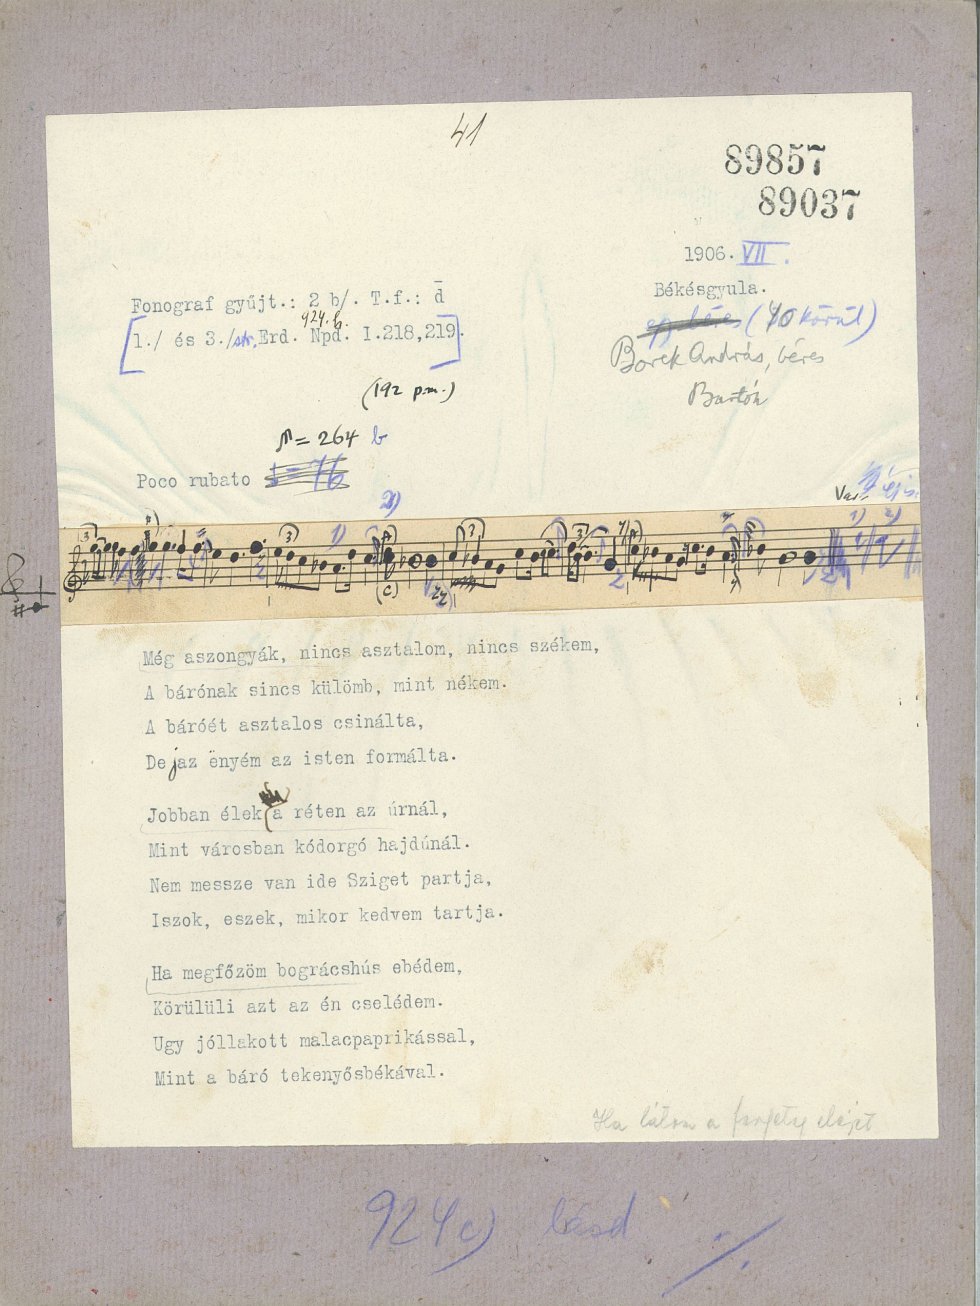 41
89857
89037
1906. VII.
Békésgyula.
(40 körül)
Borek András, béres
Bartók
Fonograf gyűjt.: 2 b/. T.f.: d̄
924.b.
1./ és 3./str. Erd. Npd. I.218,219.
(192 p.m.)
♪ = 264 b
Poco rubato
Var.
1) 2)
Még aszongyák, nincs asztalom, nincs székem,
A bárónak sincs külömb, mint nékem.
A báróét asztalos csinálta,
De jaz ënyém az isten formálta.
Jobban élek a réten az úrnál,
Mint városban kódorgó hajdúnál.
Nem messze van ide Sziget partja,
Iszok, eszek, mikor kedvem tartja.
Ha megfőzöm bográcshús ebédem,
Körülüli azt az én cselédem.
Ugy jóllakott malacpaprikással,
Mint a báró tekenyősbékával.
Ha látom a elejét
924c) lásd ·/.